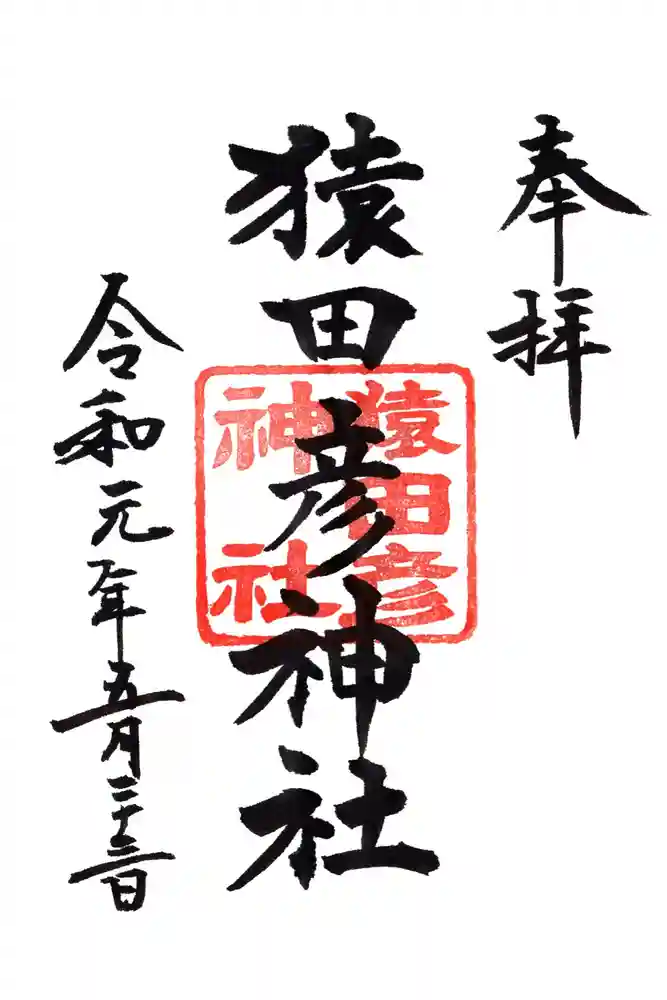 奉拝
猿田彦神社
猿田彦
神社
令和元年五月二十三日